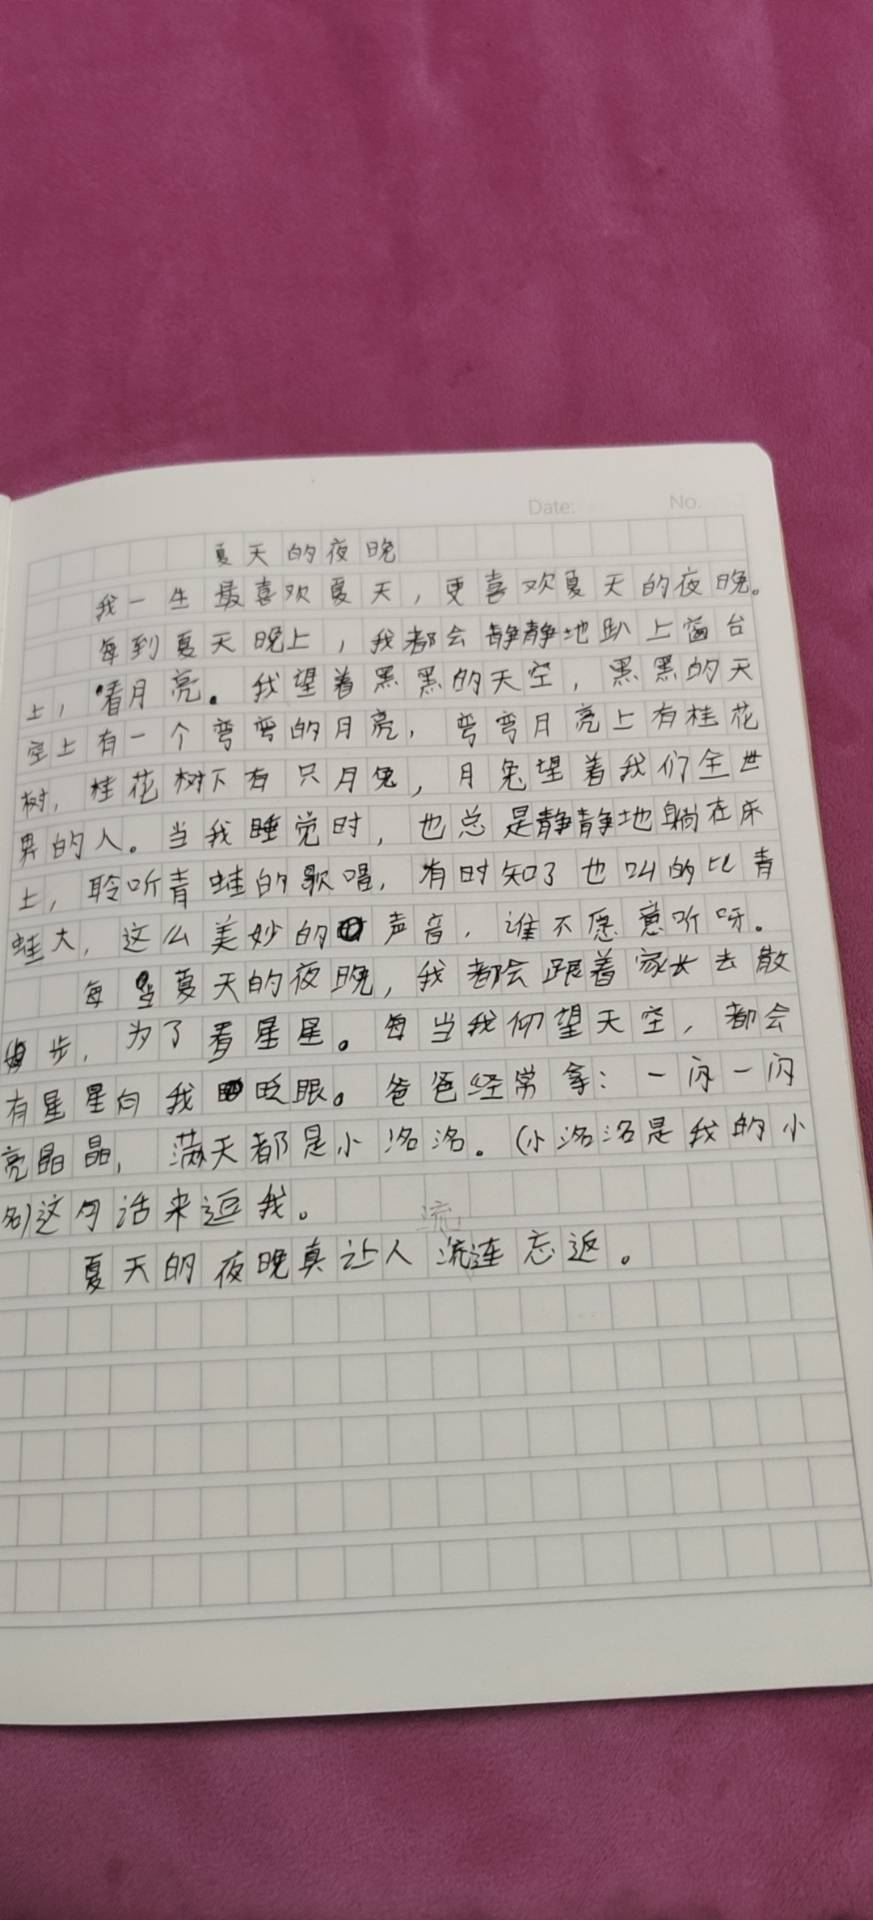 Date: No.
夏天的夜晚
我一生最喜欢夏天，更喜欢夏天的夜晚。
每到夏天晚上，我都会静静地趴上窗台
上，看月亮。我望着黑黑的天空，黑黑的天
空上有一个弯弯的月亮，弯弯月亮上有桂花
树，桂花树下有只月兔，月兔望着我们全世
界的人。当我睡觉时，也总是静静地躺在床
上，聆听青蛙的歌唱，有时知了也叫的比青
蛙大，这么美妙的声音，谁不愿意听呀。
每当夏天的夜晚，我都会跟着家长去散
步，为了看星星。每当我仰望天空，都会
有星星向我眨眼。爸爸经常拿：一闪一闪
亮晶晶，满天都是小洺洺。(小洺洺是我的小
名)这句话来逗我。
流
夏天的夜晚真让人流连忘返。